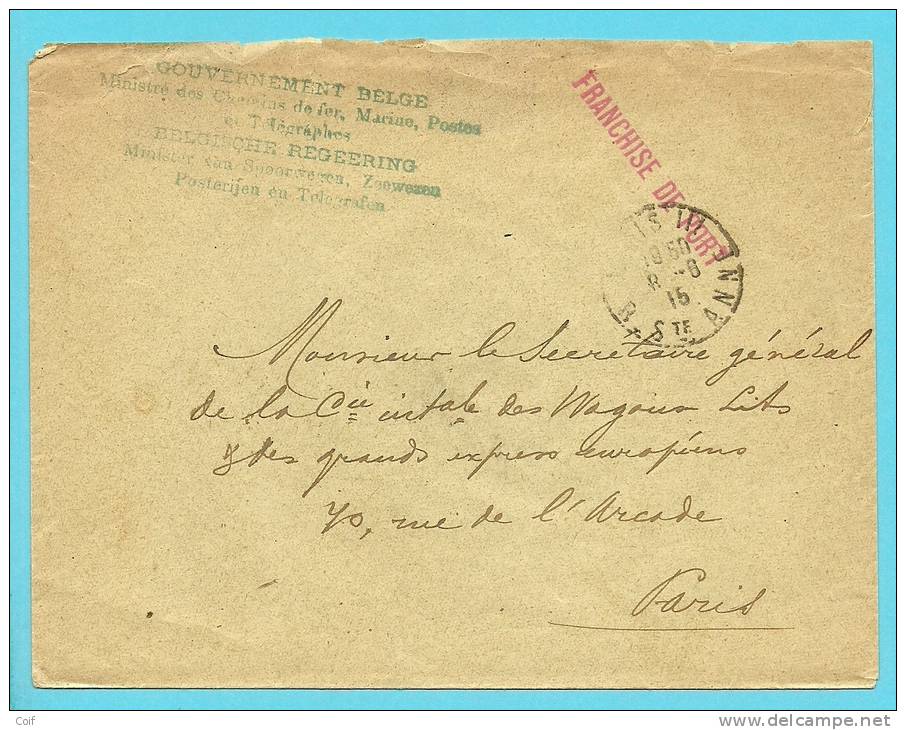 GOUVERNEMENT BELGE
Ministre des Chemins de fer, Marine, Postes
et Télégraphes
BELGISCHE REGEERING
Minister van Spoorwegen, Zeewezen
Posterijen en Telegrafen
FRANCHISE DE PORT
19 50
8 -6
15
R. STE ANNE
Monsieur le Secrétaire général
de la Cie intale des Wagons Lits
& des grands express européens
70, rue de l'Arcade
Paris
Coif
www.delcampe.net